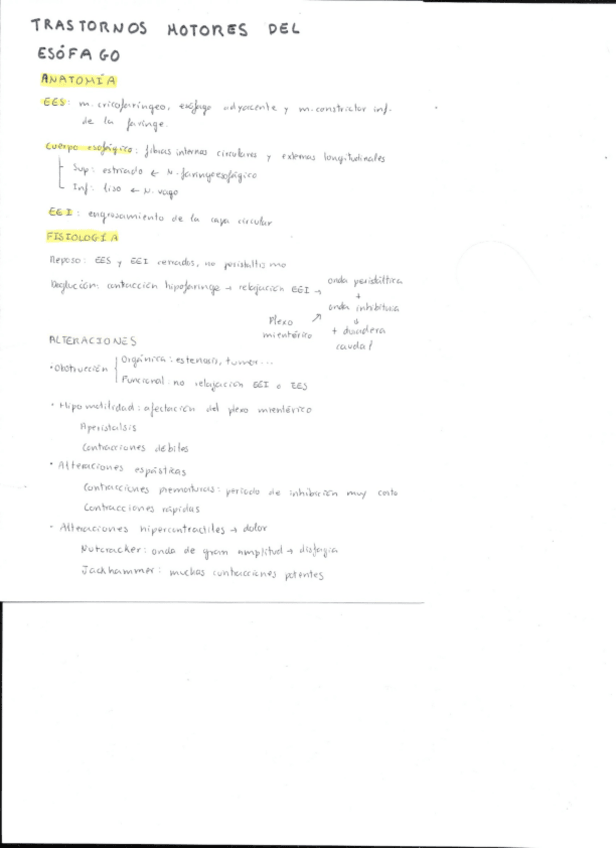 TRASTORNOS MOTORES DEL
ESÓFAGO
ANATOMÍA
EES: m. cricofaríngeo, esófago adyacente y m. constrictor inf.
de la faringe
Cuerpo esofágico: fibras internas circulares y externas longitudinales
Sup: estriado ← N. faringoesofágico
Inf: liso ← N. vago
EEI: engrosamiento de la capa circular
FISIOLOGÍA
Reposo: EES y EEI cerrados, no peristaltismo
Deglución: contracción hipofaringe → relajación EEI → onda peristáltica
+
onda inhibitoria
↓
Plexo mientérico ↗
+ duradera
caudal
ALTERACIONES
· Obstrucción
Orgánica: estenosis, tumor...
Funcional: no relajación EEI o EES
· Hipomotilidad: afectación del plexo mientérico
Aperistalsis
Contracciones débiles
· Alteraciones espásticas
Contracciones prematuras: periodo de inhibición muy corto
Contracciones rápidas
· Alteraciones hipercontractiles → dolor
Nutcracker: onda de gran amplitud → disfagia
Jackhammer: muchas contracciones potentes